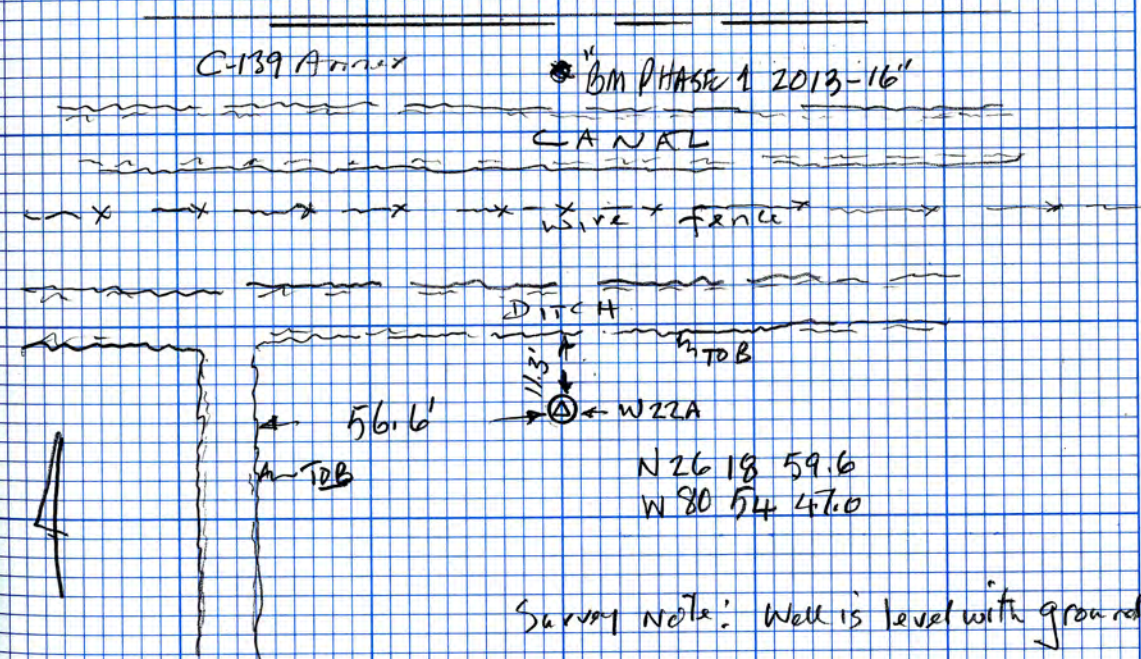 C-139 Annex
"BM PHASE 1 2013-16"
CANAL
wire fence
DITCH
TOB
11.3'
56.6'
W22A
TOB
N 26 18 59.6
W 80 54 47.0
Survey Note: Well is level with ground